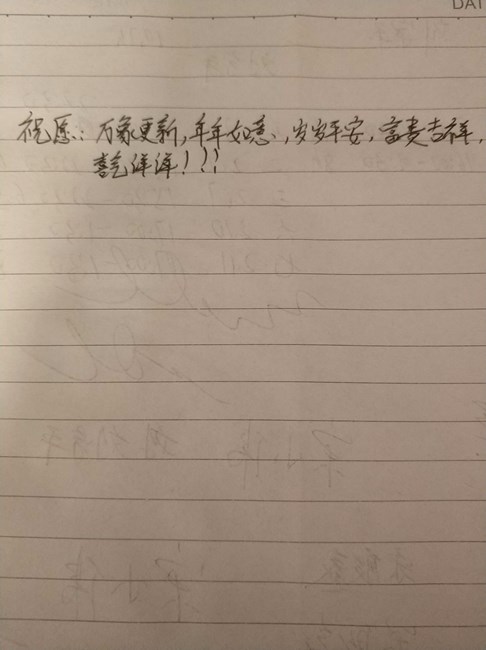 DAT
祝愿：万象更新，年年如意，岁岁平安，富贵吉祥，
喜气洋洋！！！